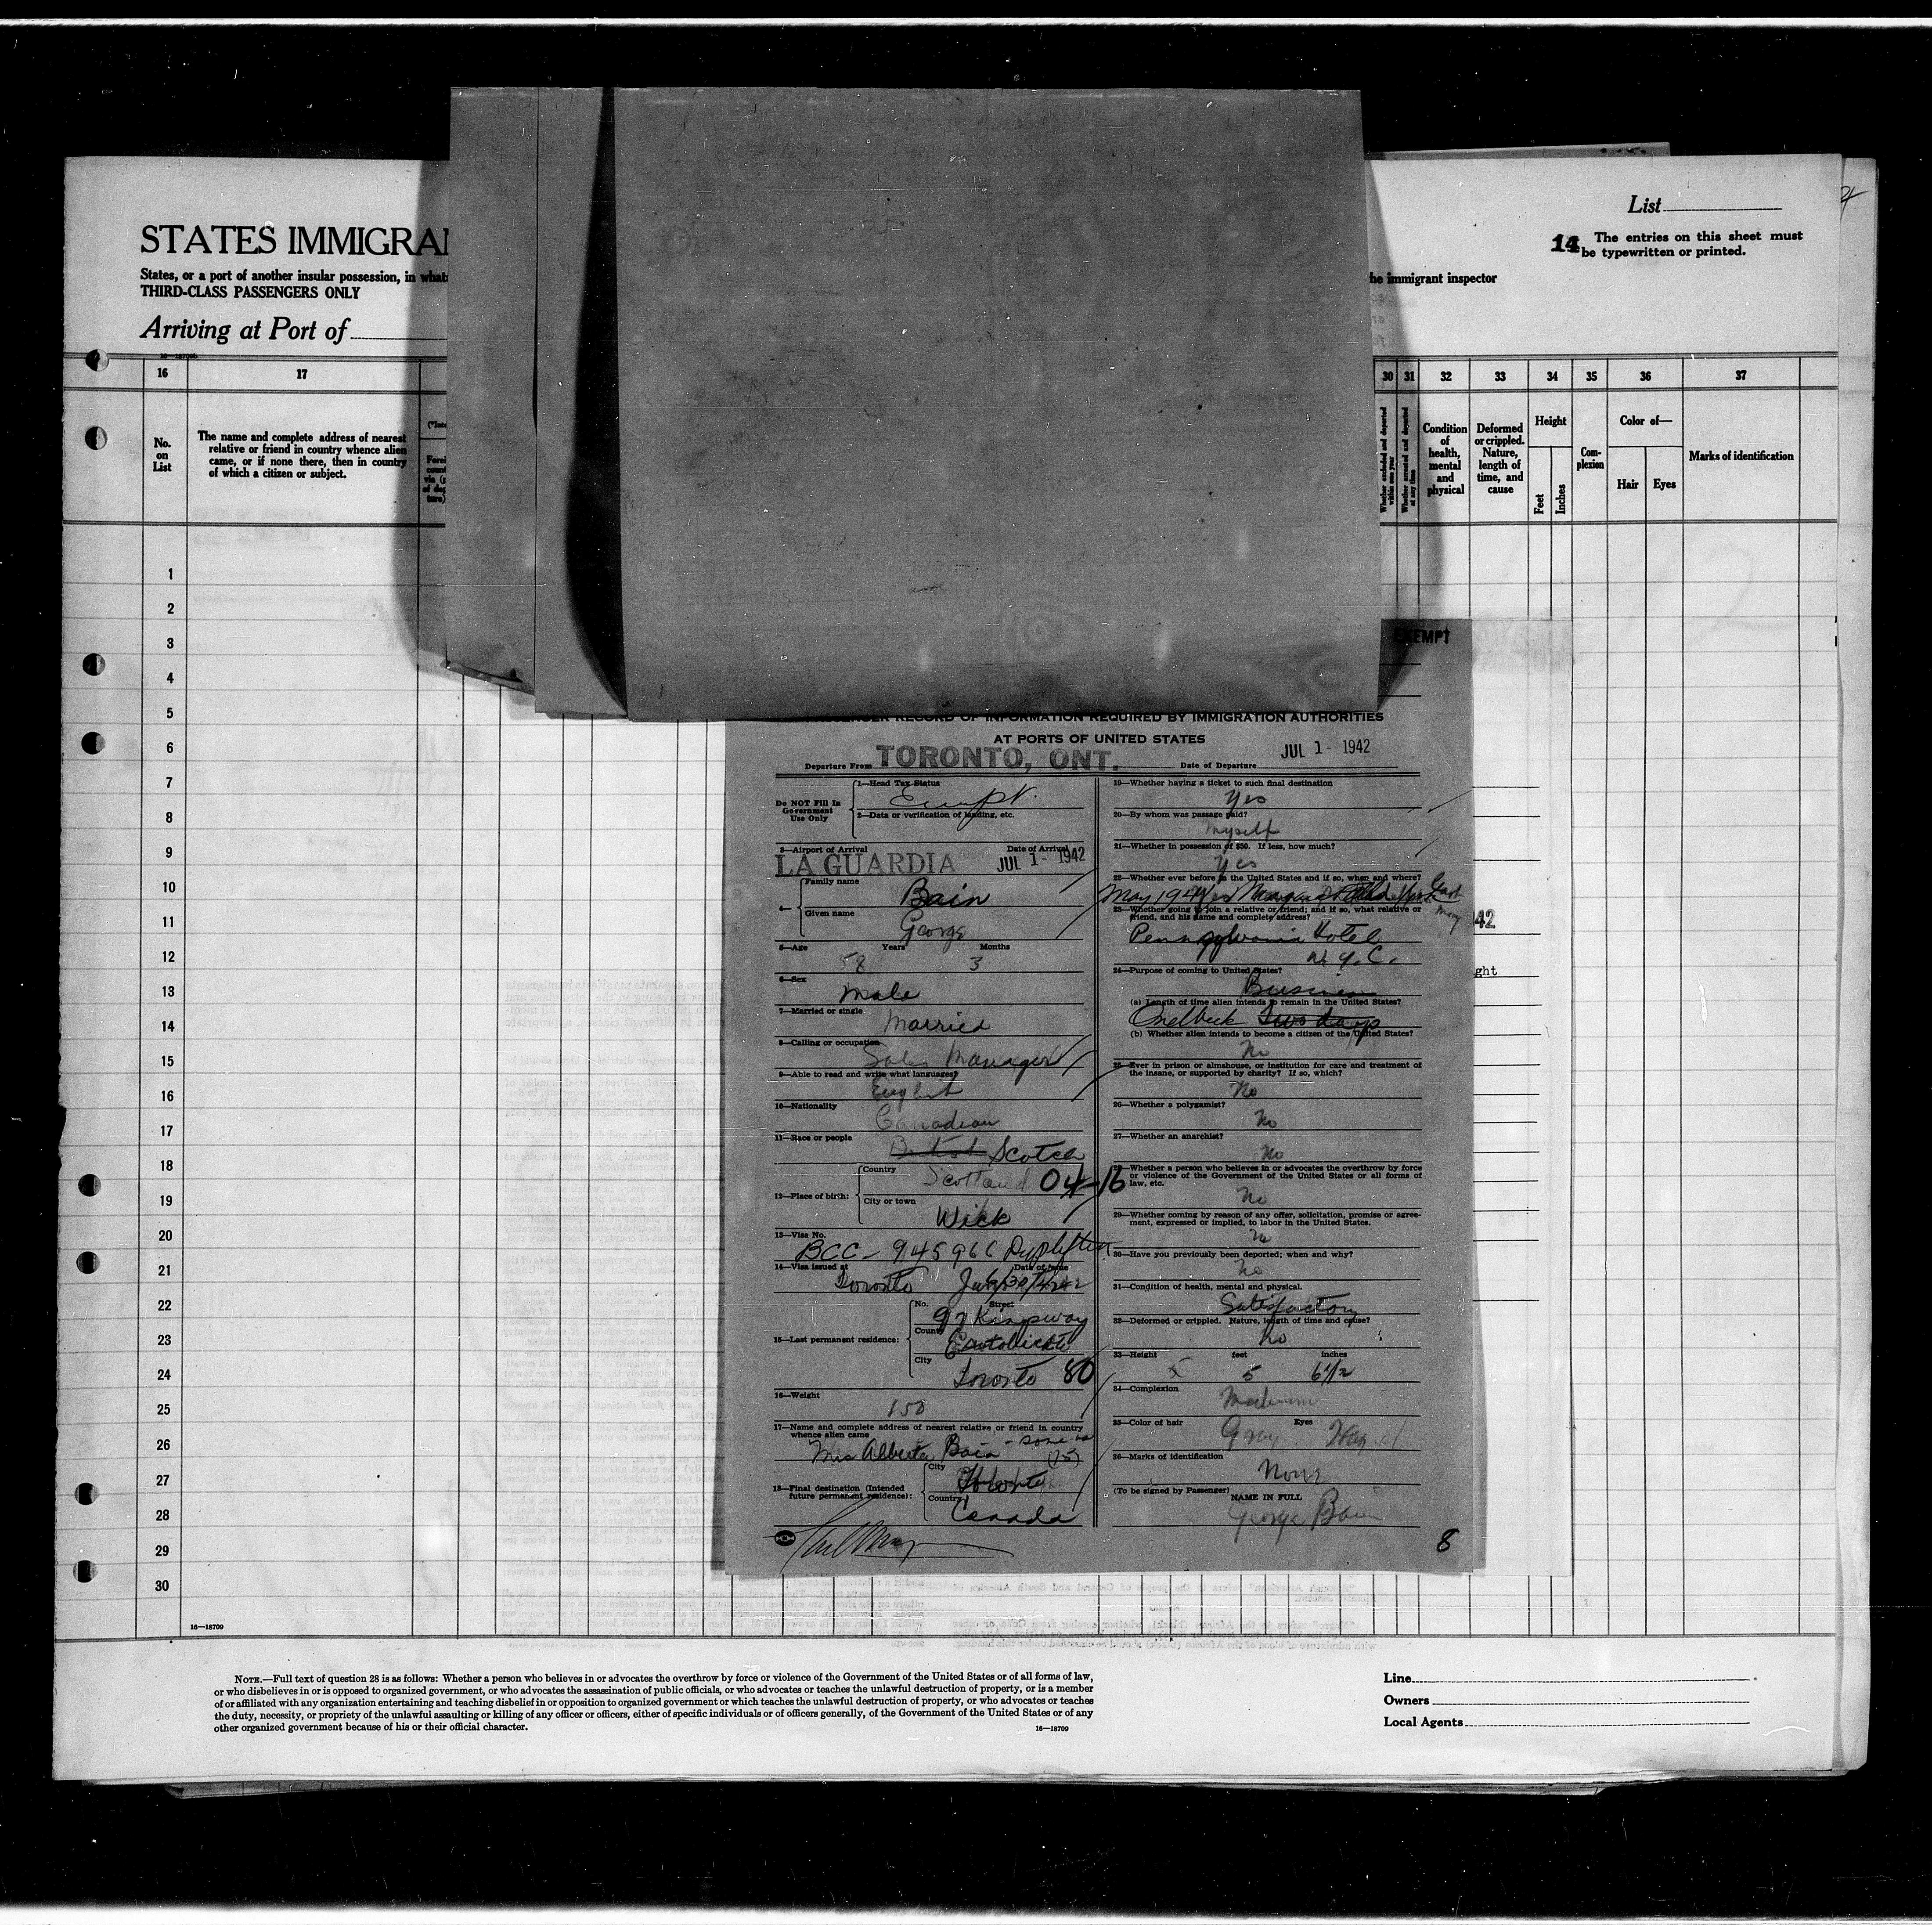 List
14 The entries on this sheet must
be typewritten or printed.
STATES IMMIGRA
States, or a port of another insular possession, in what
THIRD-CLASS PASSENGERS ONLY
he immigrant inspector
Arriving at Port of
16 17 30 31 32 33 34 35 36 37
No.
on
List
The name and complete address of nearest
relative or friend in country whence alien
came, or if none there, then in country
of which a citizen or subject.
Whether excluded and deported within one year
Whether arrested and deported at any time
Condition
of
health,
mental
and
physical
Deformed
or crippled.
Nature,
length of
time, and
cause
Height
Feet
Inches
Com-
plexion
Color of—
Hair Eyes
Marks of identification
1
2
3
4
5
6
7
8
9
10
11
12
13
14
15
16
17
18
19
20
21
22
23
24
25
26
27
28
29
30
16—18709
EMPT
RECORD OF INFORMATION REQUIRED BY IMMIGRATION AUTHORITIES
AT PORTS OF UNITED STATES
Departure From TORONTO, ONT. Date of Departure JUL 1 - 1942
Do NOT Fill In
Government
Use Only
1—Head Tax Status
Exempt
2—Data or verification of landing, etc.
3—Airport of Arrival Date of Arrival
LA GUARDIA JUL 1 - 1942
4—
Family name
Bain
Given name
George
5—Age Years Months
58 3
6—Sex
Male
7—Married or single
Married
8—Calling or occupation
Sales Manager
9—Able to read and write what languages?
English
10—Nationality
Canadian
11—Race or people
British Scotch
12—Place of birth:
Country
Scotland 04-16
City or town
Wick
13—Visa No.
BCC - 94596C
14—Visa issued at Date of issue
Toronto
15—Last permanent residence:
No. Street
97 Kingsway
County
City
Toronto 80
16—Weight
150
17—Name and complete address of nearest relative or friend in country
whence alien came
Mrs Alberta Bain - same as
(15)
18—Final destination (Intended
future permanent residence):
City
Toronto
Country
Canada
19—Whether having a ticket to such final destination
Yes
20—By whom was passage paid?
Myself
21—Whether in possession of $50. If less, how much?
Yes
22—Whether ever before in the United States and if so, when and where?
23—Whether going to join a relative or friend; and if so, what relative or
friend, and his name and complete address?
Pennsylvania Hotel
N.Y.C.
24—Purpose of coming to United States?
Business
(a) Length of time alien intends to remain in the United States?
One Week Two days
(b) Whether alien intends to become a citizen of the United States?
No
25—Ever in prison or almshouse, or institution for care and treatment of
the insane, or supported by charity? If so, which?
No
26—Whether a polygamist?
No
27—Whether an anarchist?
No
28—Whether a person who believes in or advocates the overthrow by force
or violence of the Government of the United States or all forms of
law, etc.
No
29—Whether coming by reason of any offer, solicitation, promise or agree-
ment, expressed or implied, to labor in the United States.
No
30—Have you previously been deported; when and why?
No
31—Condition of health, mental and physical.
Satisfactory
32—Deformed or crippled. Nature, length of time and cause?
No
33—Height feet inches
5 6 1/2
34—Complexion
Medium
35—Color of hair Eyes
Gray Hazel
36—Marks of identification
None
(To be signed by Passenger)
NAME IN FULL
George Bain
8
42
ght
NOTE.—Full text of question 28 is as follows: Whether a person who believes in or advocates the overthrow by force or violence of the Government of the United States or of all forms of law,
or who disbelieves in or is opposed to organized government, or who advocates the assassination of public officials, or who advocates or teaches the unlawful destruction of property, or is a member
of or affiliated with any organization entertaining and teaching disbelief in or opposition to organized government or which teaches the unlawful destruction of property, or who advocates or teaches
the duty, necessity, or propriety of the unlawful assaulting or killing of any officer or officers, either of specific individuals or of officers generally, of the Government of the United States or of any
other organized government because of his or their official character.
16—18709
Line
Owners
Local Agents